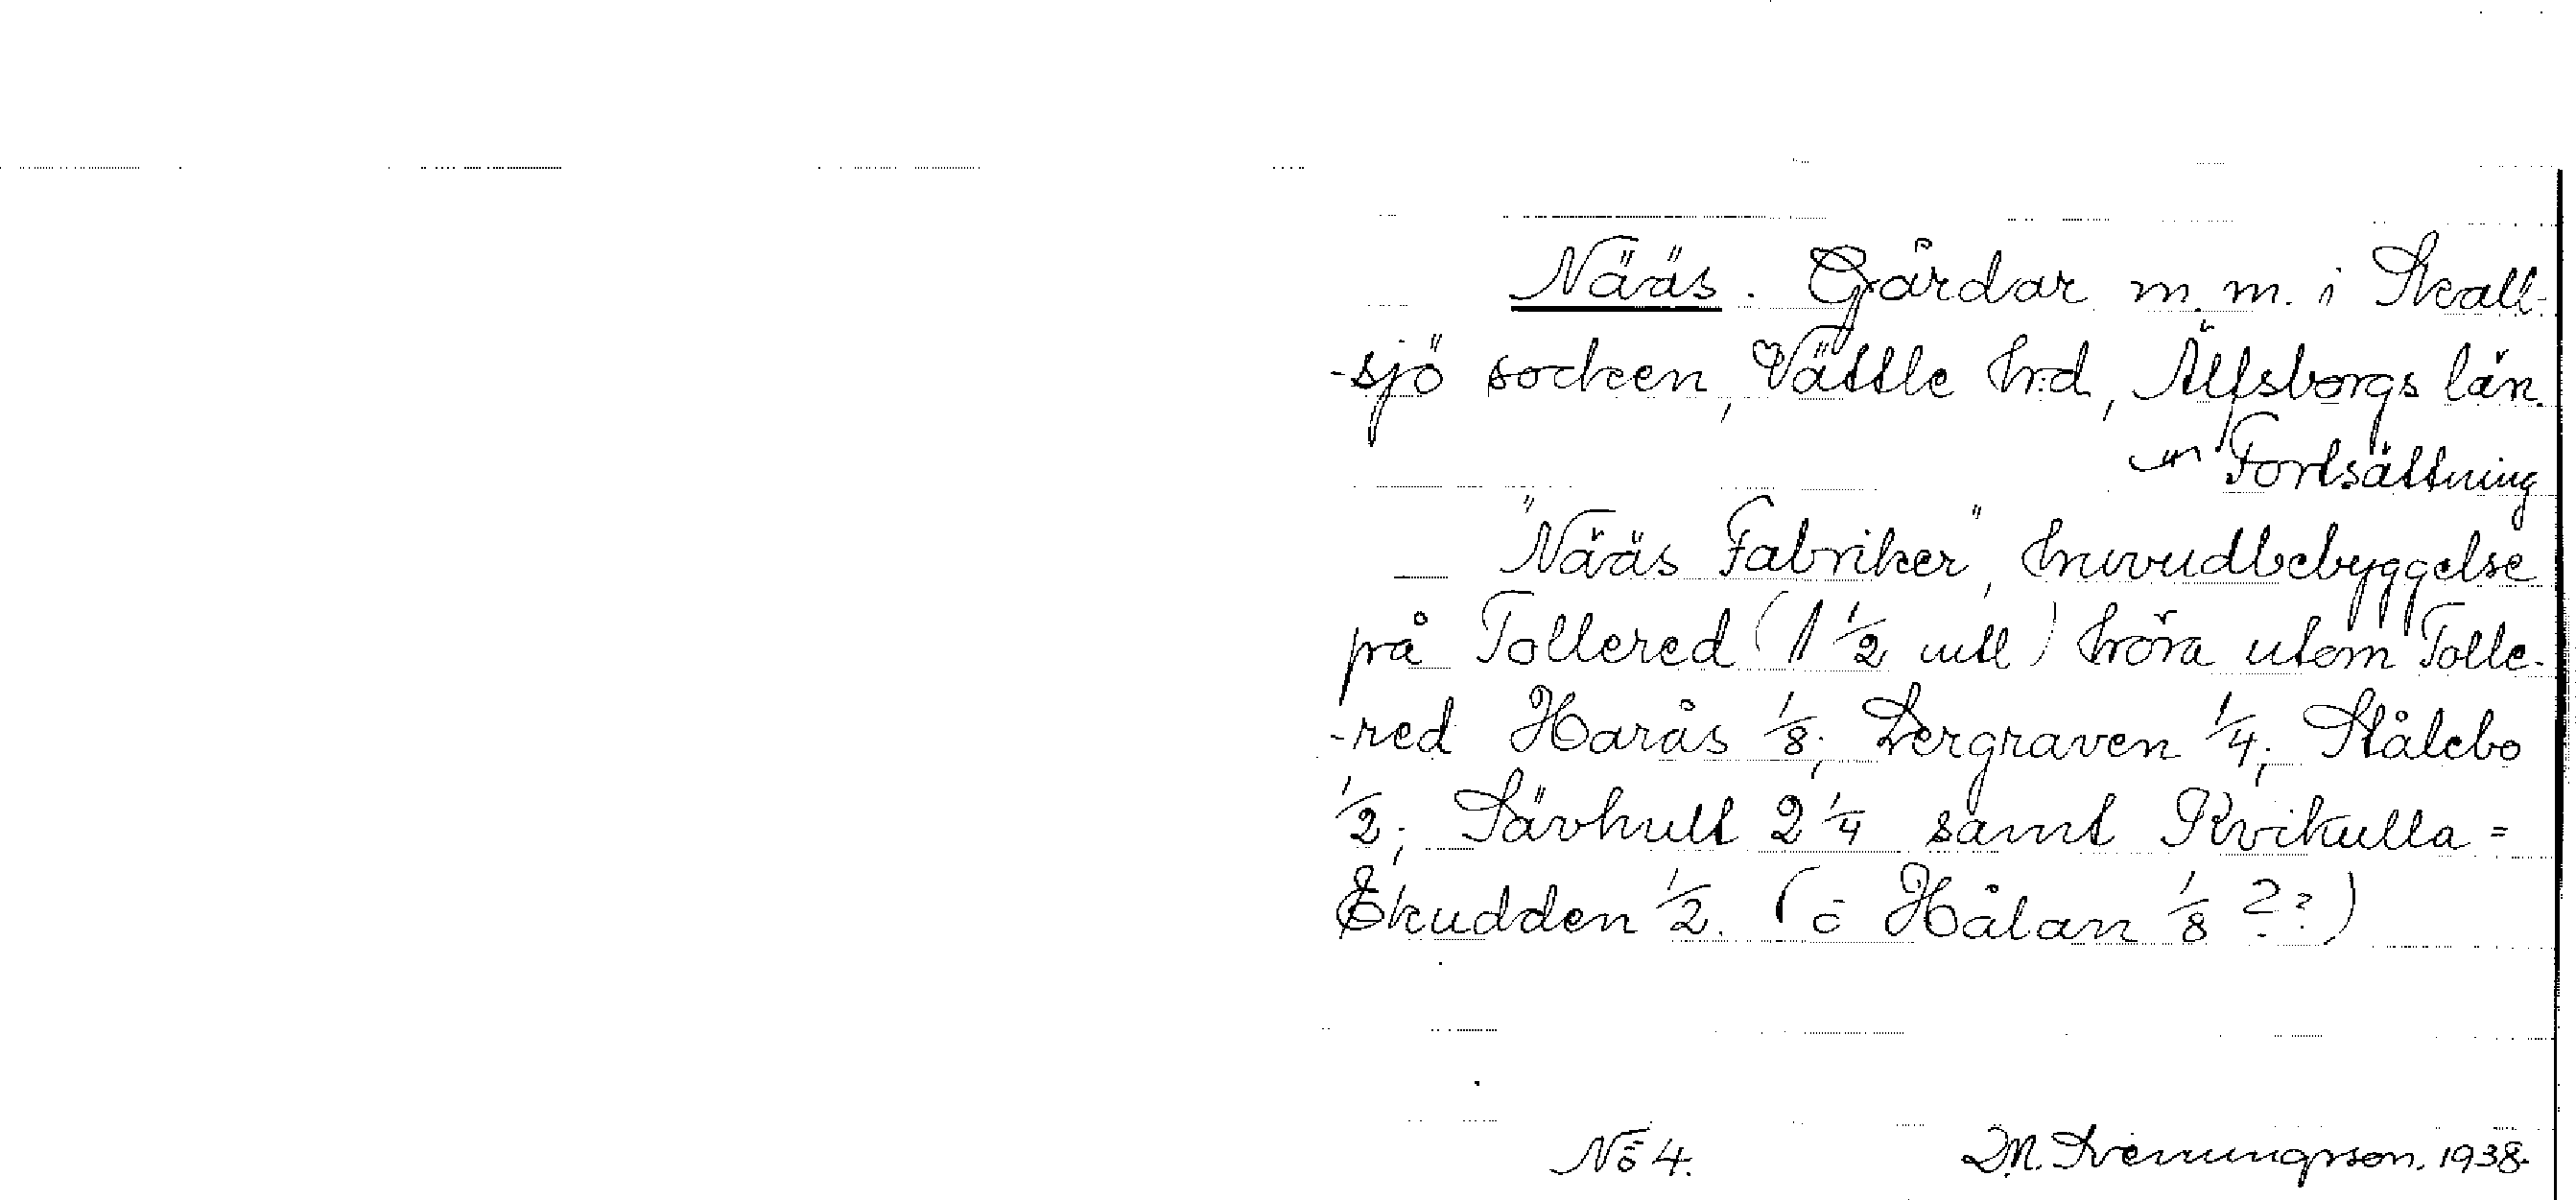 Nääs. Gårdar m. m. i Skall-
-sjö socken, Vättle hrd, Älfsborgs län.
Fortsättning
"Nääs Fabriker", huvudbebyggelse
på Tollered (1 1/2 mtl) höra utom Tolle-
-red Harås 1/8; Dergraven 1/4; Stålebo
1/2; Sävhult 2 1/4 samt Kvikulla =
Ekudden 1/2. (o Hålan 1/8 ??)
No 4. M. Svenungsson. 1938.